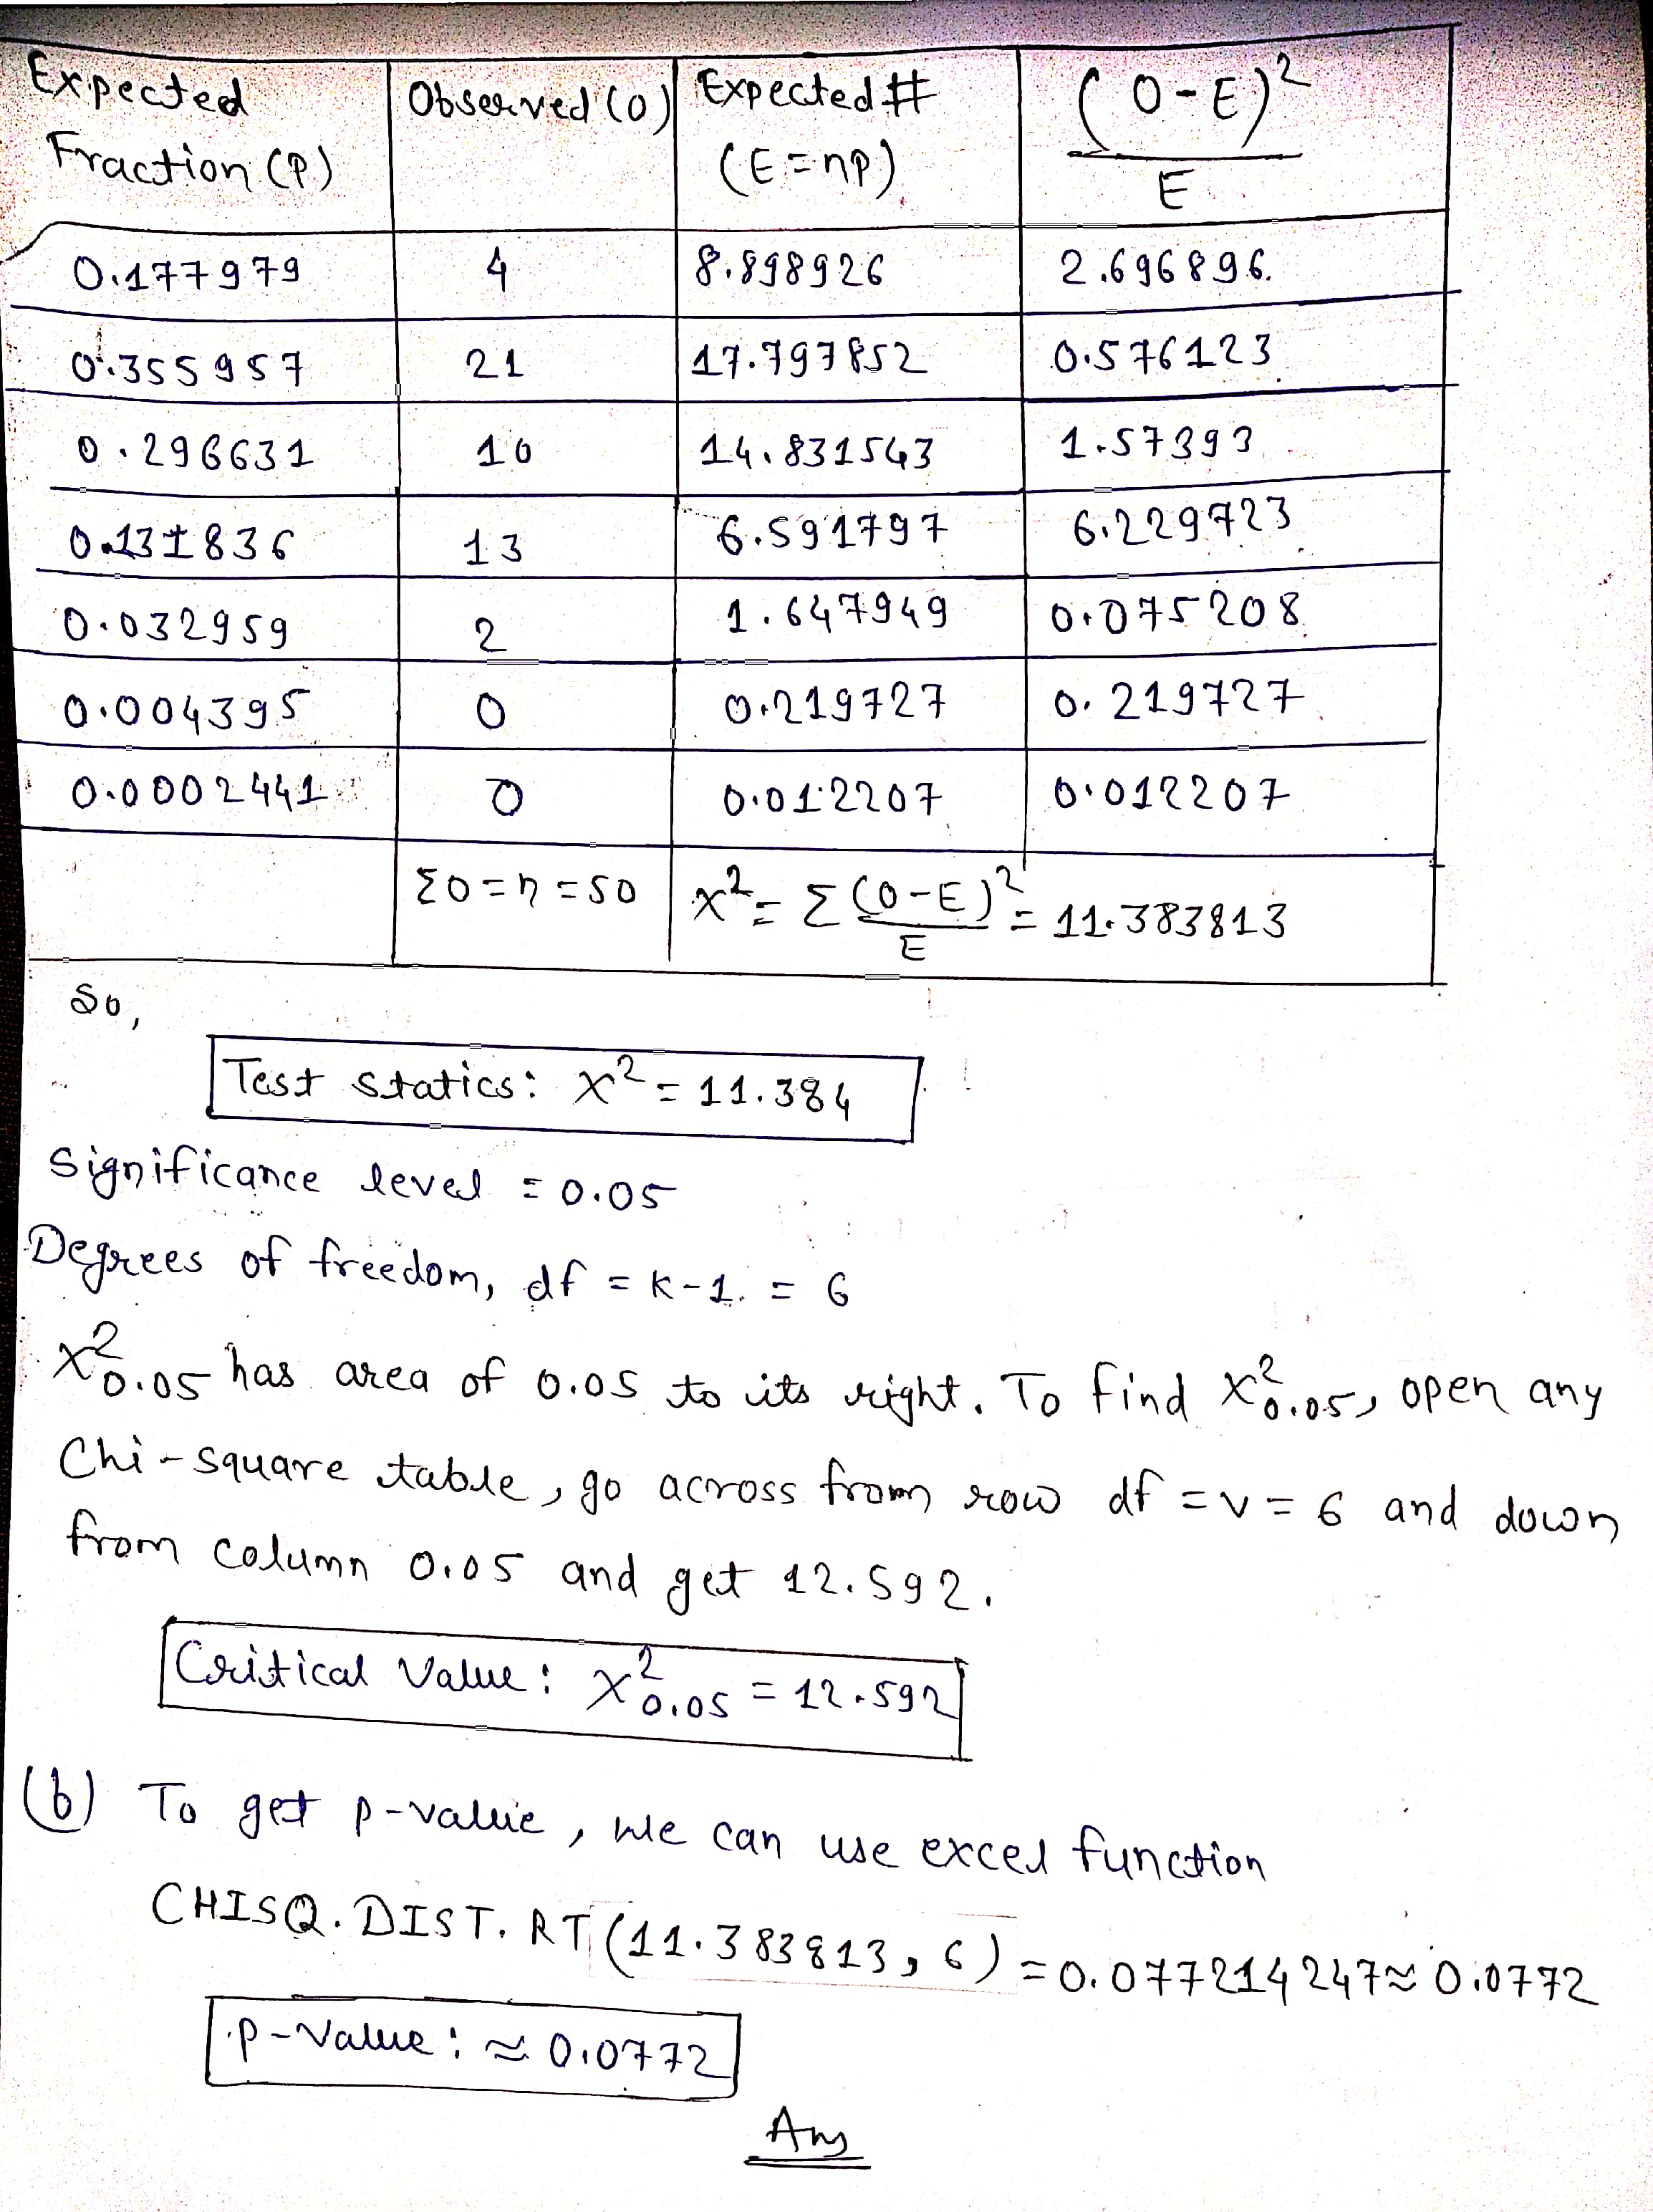 Expected Fraction (P) | Observed (O) | Expected # (E = np) | (O-E)² / E
0.177979 | 4 | 8.898926 | 2.696896.
0.355957 | 21 | 17.797852 | 0.576123
0.296631 | 10 | 14.831543 | 1.57393
0.131836 | 13 | 6.591797 | 6.229723
0.032959 | 2 | 1.647949 | 0.075208
0.004395 | 0 | 0.219727 | 0.219727
0.0002441 | 0 | 0.012207 | 0.012207
ΣO = n = 50 | x² = Σ (O-E)² / E = 11.383813
So,
Test statics: x² = 11.384
Significance level = 0.05
Degrees of freedom, df = k-1. = 6
x²0.05 has area of 0.05 to its right. To find x²0.05, open any
Chi-square table, go across from row df = v = 6 and down
from column 0.05 and get 12.592.
Critical Value: x²0.05 = 12.592
(b) To get p-value, we can use excel function
CHISQ.DIST.RT(11.383813, 6) = 0.077214247 ≈ 0.0772
p-Value: ≈ 0.0772
Ans